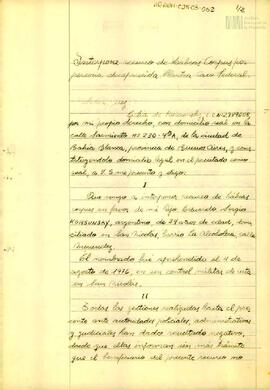 1/2
Interpone recurso de habeas corpus por
persona desaparecida. Plantea caso federal.
Señor Juez
de
por mi propio derecho, con domicilio real en la
calle Sarmiento nº 230 - 4º A, de la ciudad de
Bahía Blanca, provincia de Buenos Aires, y cons
tituyendo domicilio legal en el precitado como
real, a V.S. me presento y digo:
I
Que vengo a interponer recurso de habeas
corpus en favor de mi hijo Eduardo Sergio
argentino, de 29 años de edad, domi
ciliado en San Nicolás, barrio La
El nombrado fue aprehendido el 4 de
agosto de 1976, en un control militar de ruta
en San Nicolás.
II
Todas las gestiones realizadas hasta el pre
sente ante autoridades policiales, administrativas
y judiciales han dado resultado negativo,
desde que ellas informan sin más trámite
que el beneficiario del presente recurso no